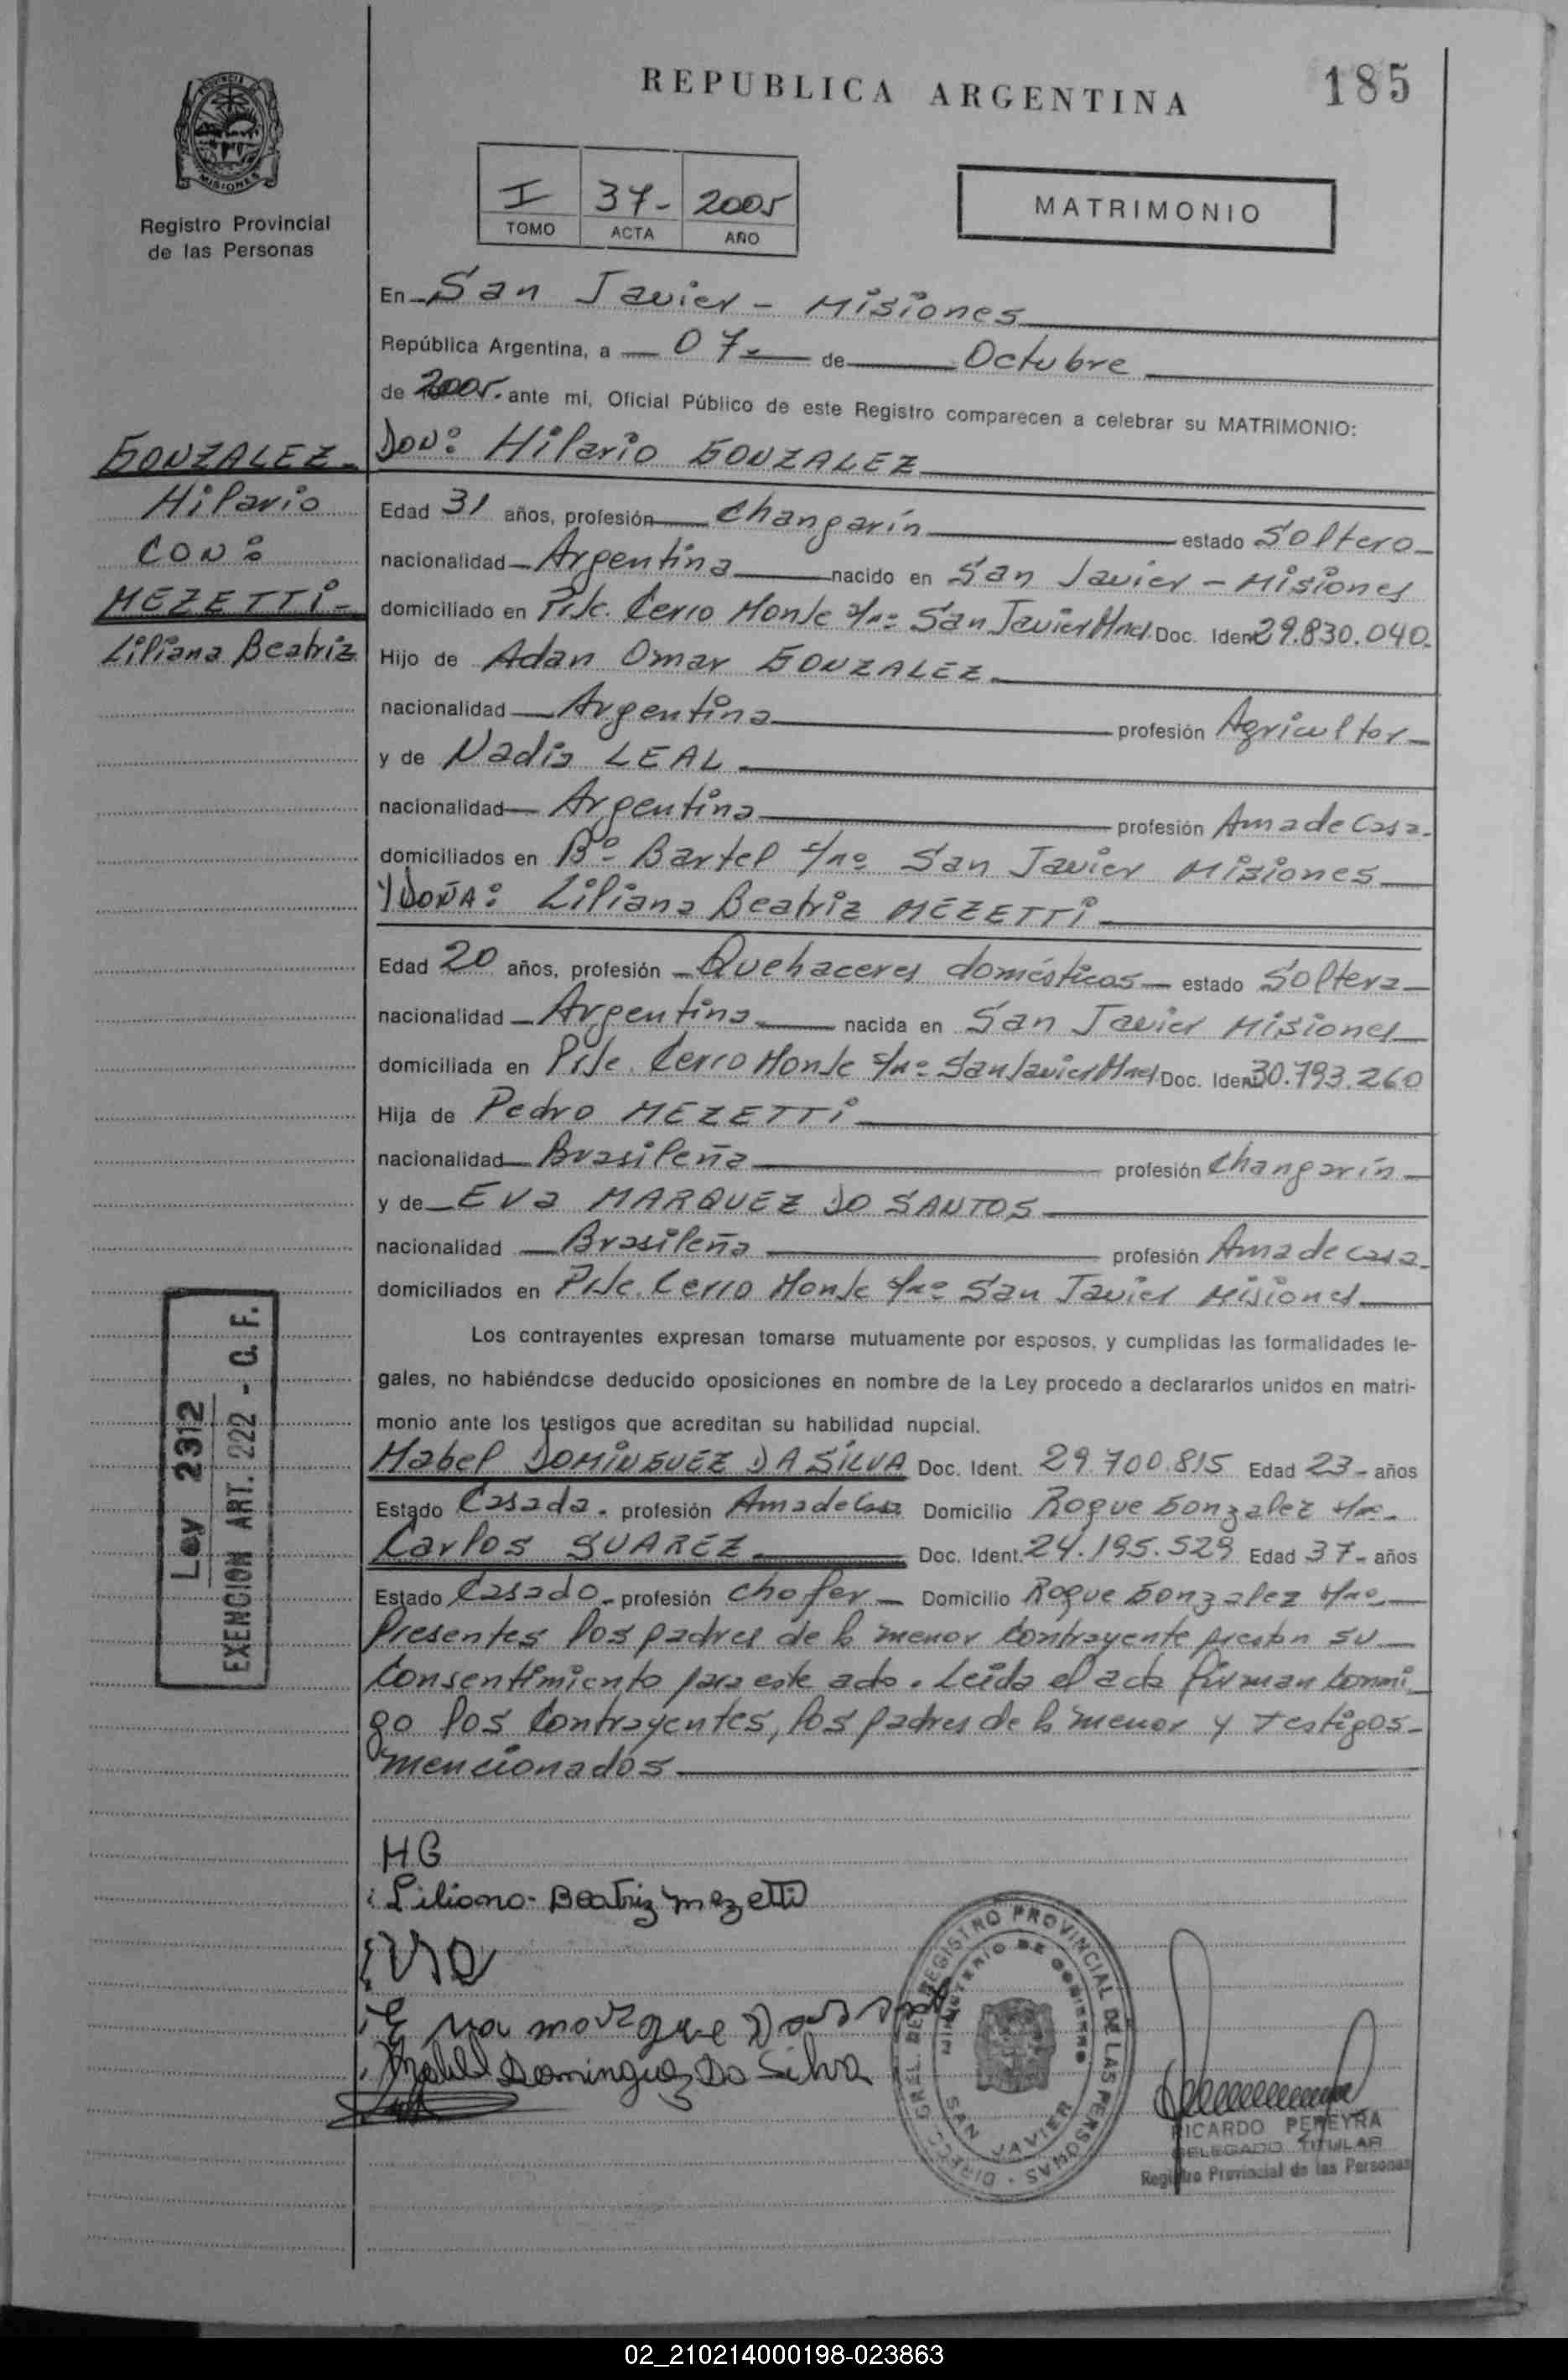 REPUBLICA ARGENTINA
185
PROVINCIA
MISIONES
Registro Provincial
de las Personas
I 37- 2005
TOMO ACTA AÑO
MATRIMONIO
En San Javier - Misiones
República Argentina, a 07- de Octubre
de 2005. ante mi, Oficial Público de este Registro comparecen a celebrar su MATRIMONIO:
GONZALEZ-
Hilario
CON:
MEZETTI-
Liliana Beatriz
DON: Hilario GONZALEZ
Edad 31 años, profesión Changarín estado Soltero-
nacionalidad Argentina nacido en San Javier - Misiones
domiciliado en Pje. Cerro Monje s/nº San Javier Mnes Doc. Ident 29.830.040.
Hijo de Adan Omar GONZALEZ.
nacionalidad Argentina profesión Agricultor-
y de Nadia LEAL
nacionalidad Argentina profesión Ama de Casa.
domiciliados en Bº Bartel s/nº San Javier Misiones
Y DOÑA: Liliana Beatriz MEZETTI
Edad 20 años, profesión Quehaceres domésticos estado Soltera
nacionalidad Argentina nacida en San Javier Misiones
domiciliada en Pje. Cerro Monje s/nº San Javier Mnes Doc. Ident 30.793.260
Hija de Pedro MEZETTI
nacionalidad Brasileña profesión Changarín
y de Eva MARQUEZ DO SANTOS
nacionalidad Brasileña profesión Ama de casa.
domiciliados en Pje. Cerro Monje s/nº San Javier Misiones
Los contrayentes expresan tomarse mutuamente por esposos, y cumplidas las formalidades le-
gales, no habiéndose deducido oposiciones en nombre de la Ley procedo a declararlos unidos en matri-
monio ante los testigos que acreditan su habilidad nupcial.
Mabel DOMINGUEZ DA SILVA Doc. Ident. 29.700.815 Edad 23- años
Estado Casada. profesión Ama de Casa Domicilio Roque Gonzalez s/nº-
Carlos SUAREZ Doc. Ident. 24.195.529 Edad 37- años
Estado Casado- profesión Chofer- Domicilio Roque Gonzalez s/nº
Presentes los padres de la menor contrayente prestan su
consentimiento para este acto. Leída el acta firman conmi
go los contrayentes, los padres de la menor y testigos
mencionados
Ley 2312
EXENCION ART. 222 - C. F.
HG
Liliana Beatriz Mezetti
Mabel Dominguez Da Silva
DIRECC. GRAL. DEL REGISTRO PROVINCIAL DE LAS PERSONAS
MINISTERIO DE GOBIERNO
SAN JAVIER
RICARDO PEREYRA
DELEGADO TITULAR
Registro Provincial de las Personas
02_210214000198-023863